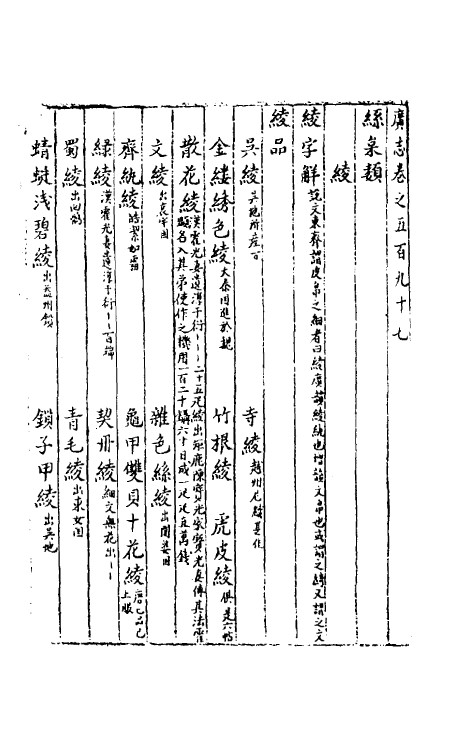 廣志卷之五百九十七
絲枲類
綾
綾字解 說文東齊謂布帛之細者曰綾廣韻綾紈也增韻文帛也或謂之綺又謂之文
綾品
吳綾 吳 寺綾 越州尼
金縷綉色綾 大秦國進於魏 竹根綾 虎皮綾 俱是六
散花綾 漢霍光妻遺淳于衍二十五疋綾出鉅鹿陳寶光家寶光妻傳其法霍顯召入其第使作之機用一百二十鑷六十日成一疋疋直萬錢
文綾 出哀牢國 雜色絲綾 出闍婆國
齊紈綾 皓潔如霜 龜甲雙貝十花綾 唐六品已上服
綠綾 漢霍光妻遺淳于衍百端 契丹綾 細文無花出
蜀綾 出西蜀 青毛綾 出東女國
蜻蜓淺碧綾 出 鎖子甲綾 出吳地